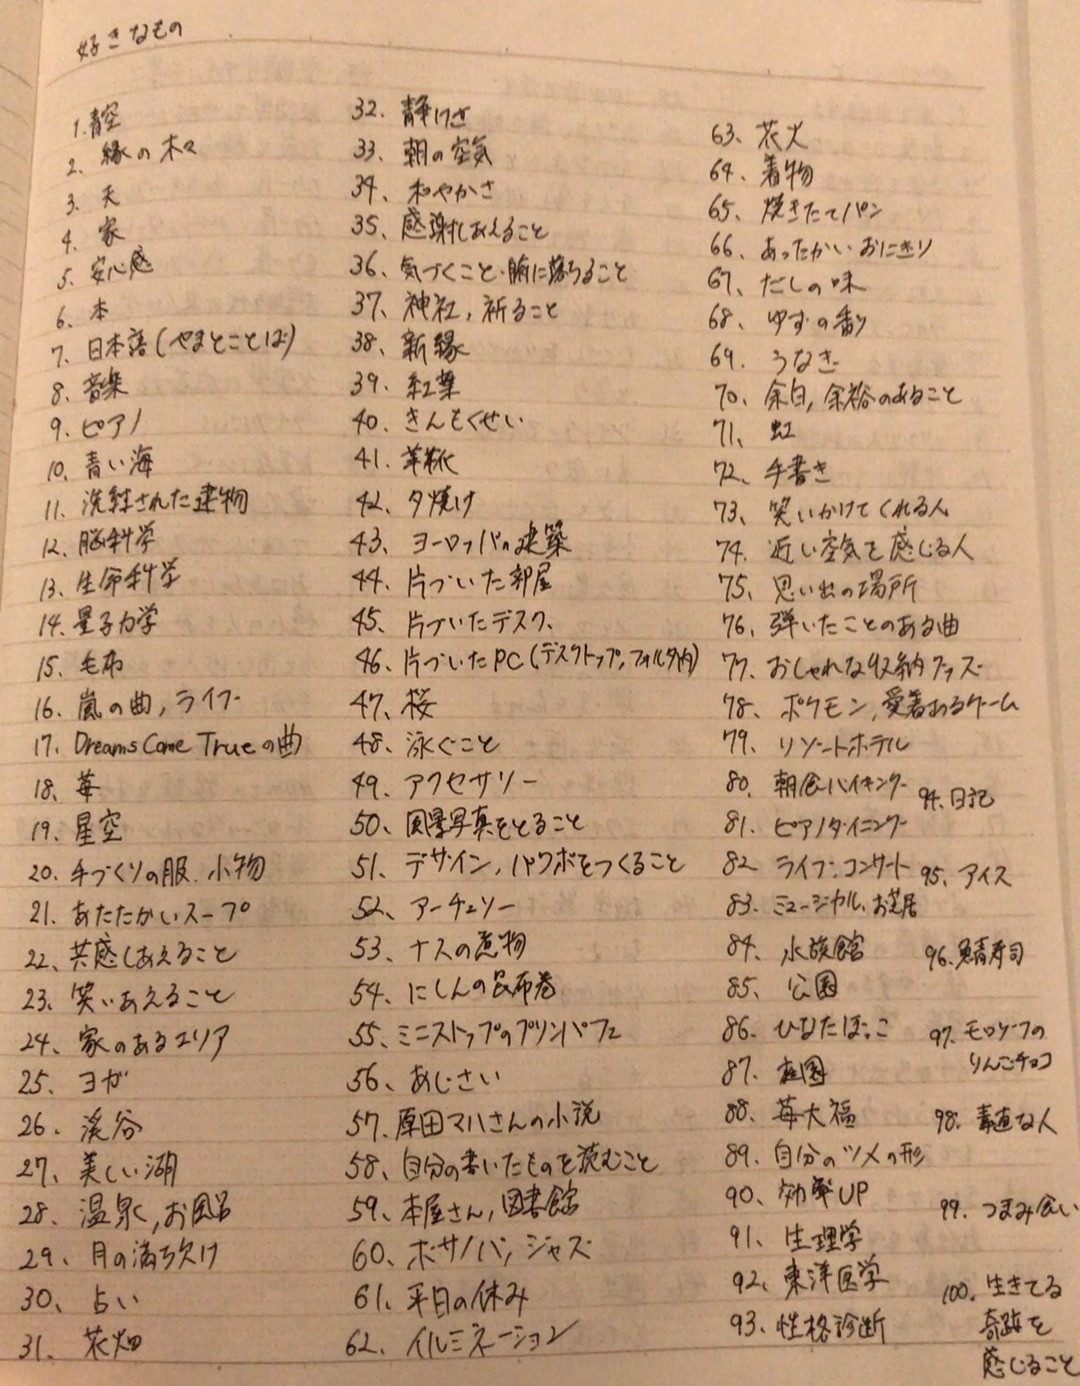 好きなもの
1. 青空
2. 緑の木々
3. 夫
4. 家
5. 安心感
6. 本
7. 日本語(やまとことば)
8. 音楽
9. ピアノ
10. 青い海
11. 洗練された建物
12. 脳科学
13. 生命科学
14. 量子力学
15. 毛布
16. 嵐の曲, ライブ
17. Dreams Come Trueの曲
18. 苺
19. 星空
20. 手づくりの服、小物
21. あたたかいスープ
22. 共感しあえること
23. 笑いあえること
24. 家のあるエリア
25. ヨガ
26. 渓谷
27. 美しい湖
28. 温泉, お風呂
29. 月の満ち欠け
30. 占い
31. 花畑
32. 静けさ
33. 朝の空気
34. 和やかさ
35. 感謝しあえること
36. 気づくこと・腑に落ちること
37. 神社, 祈ること
38. 新緑
39. 紅葉
40. きんもくせい
41. 革靴
42. 夕焼け
43. ヨーロッパの建築
44. 片づいた部屋
45. 片づいたデスク、
46. 片づいたPC(デスクトップ, フォルダ内)
47. 桜
48. 泳ぐこと
49. アクセサリー
50. 風景写真をとること
51. デザイン, パワポをつくること
52. アーチェリー
53. ナスの煮物
54. にしんの昆布巻
55. ミニストップのプリンパフェ
56. あじさい
57. 原田マハさんの小説
58. 自分の書いたものを読むこと
59. 本屋さん, 図書館
60. ボサノバ, ジャズ
61. 平日の休み
62. イルミネーション
63. 花火
64. 着物
65. 焼きたてパン
66. あったかいおにぎり
67. だしの味
68. ゆずの香り
69. うなぎ
70. 余白, 余裕のあること
71. 虹
72. 手書き
73. 笑いかけてくれる人
74. 近い空気を感じる人
75. 思い出の場所
76. 弾いたことのある曲
77. おしゃれな収納グッズ
78. ポケモン, 愛着あるゲーム
79. リゾートホテル
80. 朝食バイキング
81. ピアノダイニング
82. ライブ・コンサート
83. ミュージカル、お芝居
84. 水族館
85. 公園
86. ひなたぼっこ
87. 庭園
88. 苺大福
89. 自分のツメの形
90. 効率UP
91. 生理学
92. 東洋医学
93. 性格診断
94. 日記
95. アイス
96. 鯖寿司
97. モロゾフの
りんごチョコ
98. 素直な人
99. つまみ食い
100. 生きてる
奇跡を
感じること